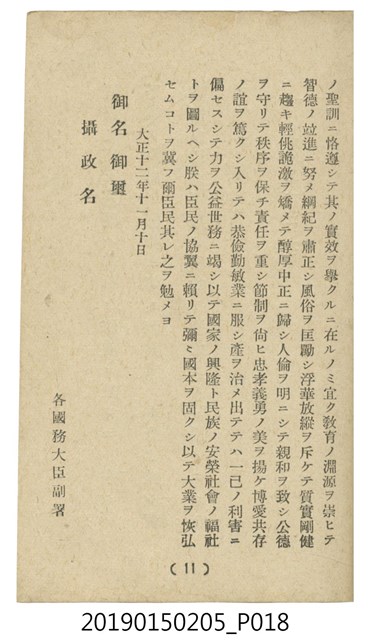 ノ聖訓ニ恪遵シテ其ノ實效ヲ擧クルニ在ルノミ宜ク敎育ノ淵源ヲ崇ヒテ
智德ノ竝進ニ努メ綱紀ヲ肅正シ風俗ヲ匡勵シ浮華放縱ヲ斥ケテ質實剛健
ニ趨キ輕佻詭激ヲ矯メテ醇厚中正ニ歸シ人倫ヲ明ニシテ親和ヲ致シ公德
ヲ守リテ秩序ヲ保チ責任ヲ重シ節制ヲ尙ヒ忠孝義勇ノ美ヲ揚ケ博愛共存
ノ誼ヲ篤クシ入リテハ恭儉勤敏業ニ服シ產ヲ治メ出テテハ一己ノ利害ニ
偏セスシテ力ヲ公益世務ニ竭シ以テ國家ノ興隆ト民族ノ安榮社會ノ福祉
トヲ圖ルヘシ朕ハ臣民ノ協翼ニ賴リテ彌〻國本ヲ固クシ以テ大業ヲ恢弘
セムコトヲ冀フ爾臣民其レ之ヲ勉メヨ
大正十二年十一月十日
御名御璽
攝政名
各國務大臣副署
(11)
20190150205_P018